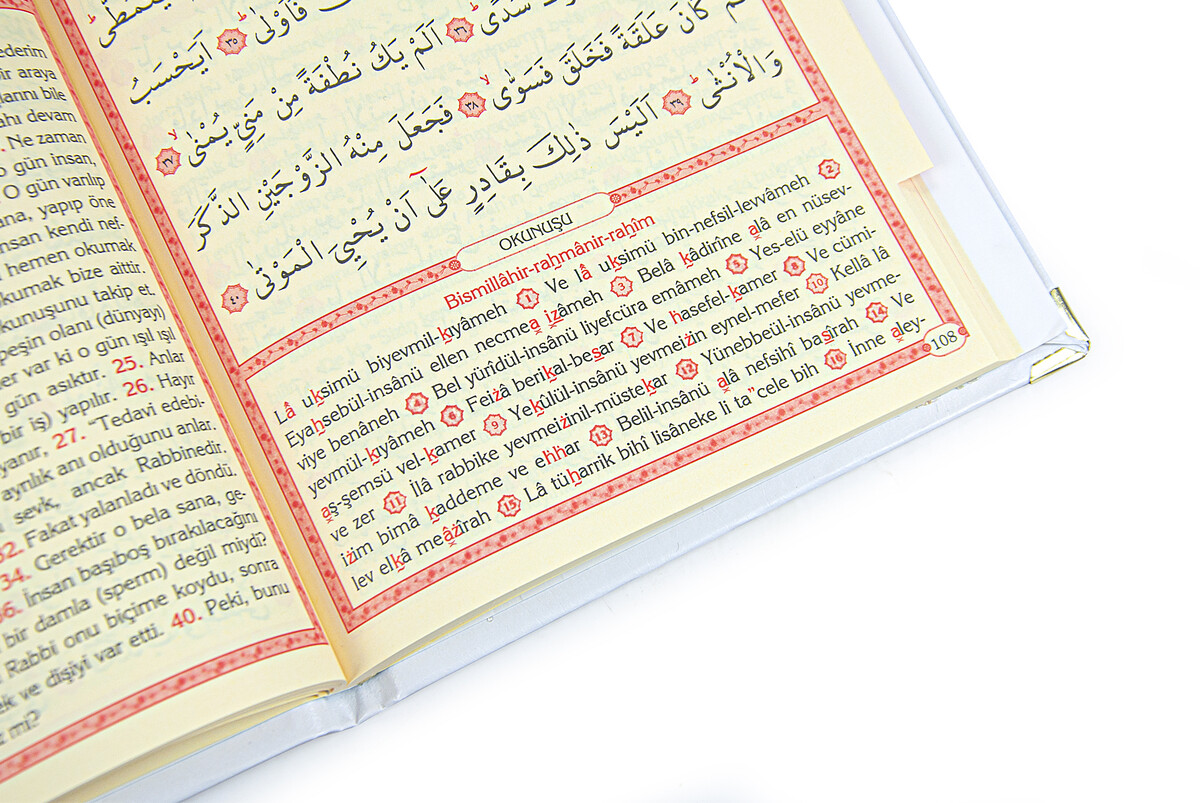 ederim
bir araya
larını bile
ahı devam
Ne zaman
o gün insan,
O gün varılıp
ana, yapıp öne
nsan kendi nef-
hemen okumak
kumak bize aittir.
kunuşunu takip et.
peşin olanı (dünyayı)
er var ki o gün ışıl ışıl
gün asıktır. 25. Anlar
bir iş) yapılır. 26. Hayır
yanır, 27. “Tedavi edebi-
ayrılık anı olduğunu anlar.
sevk, ancak Rabbinedir.
32. Fakat yalanladı ve döndü.
34. Gerektir o bela sana, ge-
36. İnsan başıboş bırakılacağını
bir damla (sperm) değil miydi?
Rabbi onu biçime koydu, sonra
ek ve dişiyi var etti. 40. Peki, bunu
mi?
فَاَوْلٰىۜ ﴿٣٥﴾ اَيَحْسَبُ
سُدًىۜ ﴿٣٦﴾ اَلَمْ يَكُ نُطْفَةً مِنْ مَنِيٍّ يُمْنٰىۙ ﴿٣٧﴾
كَانَ عَلَقَةً فَخَلَقَ فَسَوّٰىۙ ﴿٣٨﴾ فَجَعَلَ مِنْهُ الزَّوْجَيْنِ الذَّكَرَ
وَالْاُنْثٰىۜ ﴿٣٩﴾ اَلَيْسَ ذٰلِكَ بِقَادِرٍ عَلٰٓى اَنْ يُحْيِيَ الْمَوْتٰى ﴿٤٠﴾
OKUNUŞU
Bismillâhir-rahmânir-rahîm
Lâ uksimü biyevmil-kıyâmeh 1 Ve lâ uksimü bin-nefsil-levvâmeh 2
Eyahsebül-insânü ellen necmea izâmeh 3 Belâ kâdirîne alâ en nüsev-
viye benâneh 4 Bel yürîdül-insânü liyefcüra emâmeh 5 Yes-elü eyyâne
yevmül-kıyâmeh 6 Feizâ berikal-besar 7 Ve hasefel-kamer 8 Ve cümi-
aş-şemsü vel-kamer 9 Yekûlül-insânü yevmeizin eynel-mefer 10 Kellâ lâ
ve zer 11 İlâ rabbike yevmeizinil-müstekar 12 Yünebbeül-insânü yevme-
izim bimâ kaddeme ve ehhar 13 Belil-insânü alâ nefsihî basîrah 14 Ve
lev elkâ meâzîrah 15 Lâ tüharrik bihî lisâneke li ta”cele bih 16 İnne aley-
108